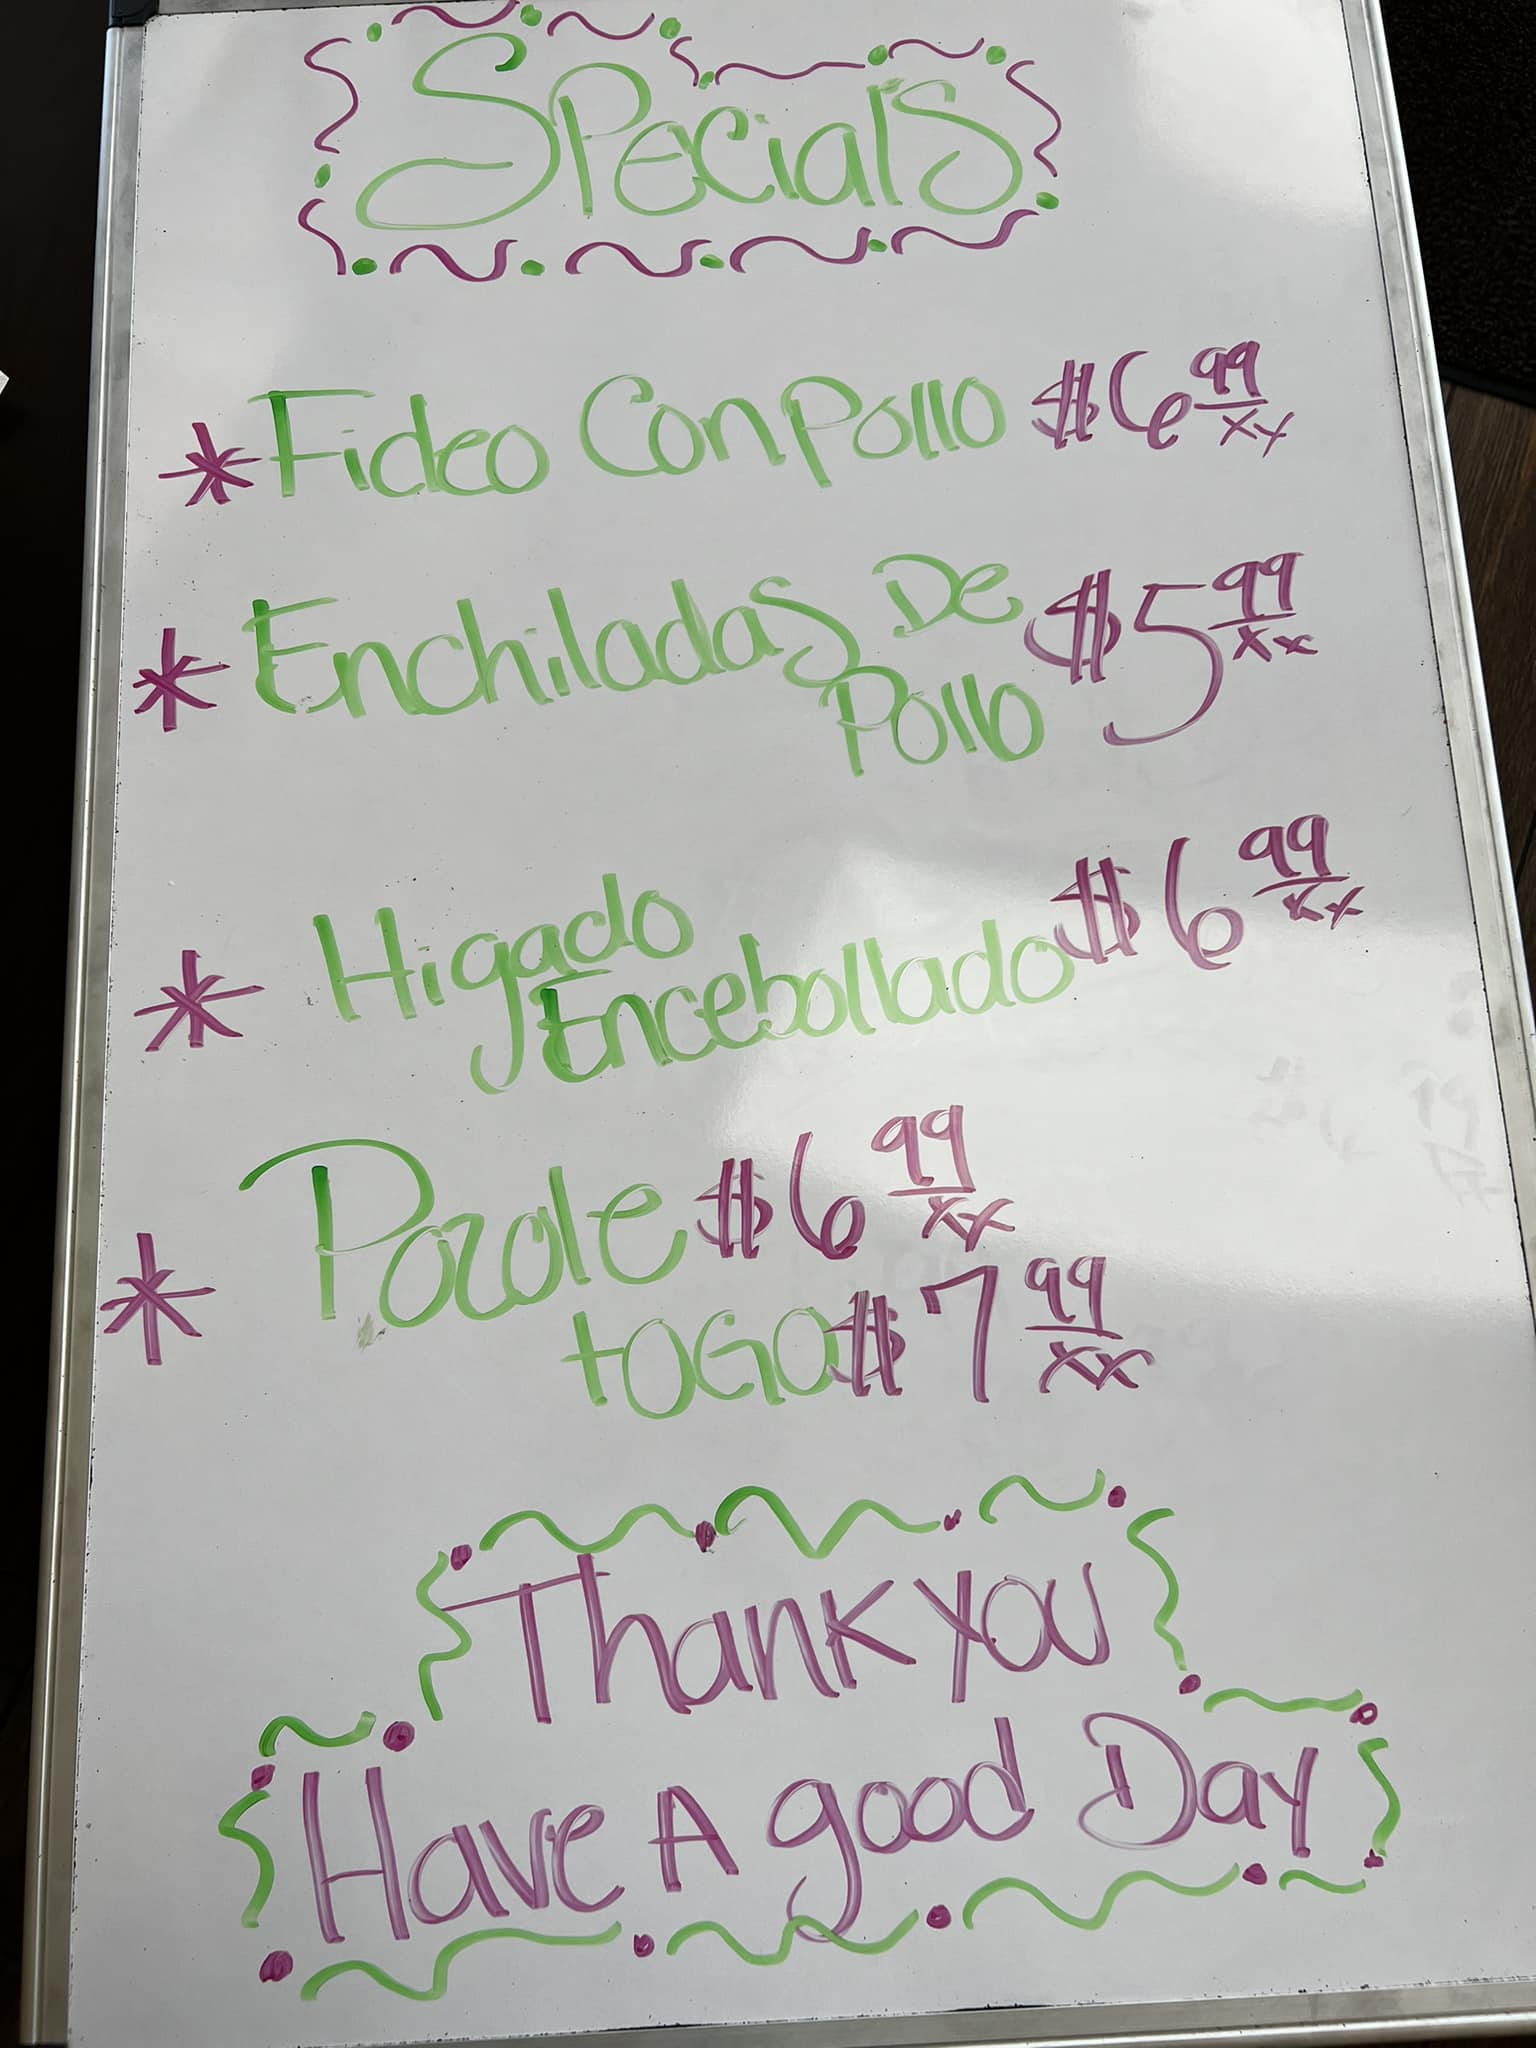 Specials
* Fideo Con Pollo $6 99/xx
* Enchiladas De $5 99/xx
Pollo
* Higado $6 99/xx
Encebollado
* Pozole $6 99/xx
toGo $7 99/xx
Thank you
Have A good Day